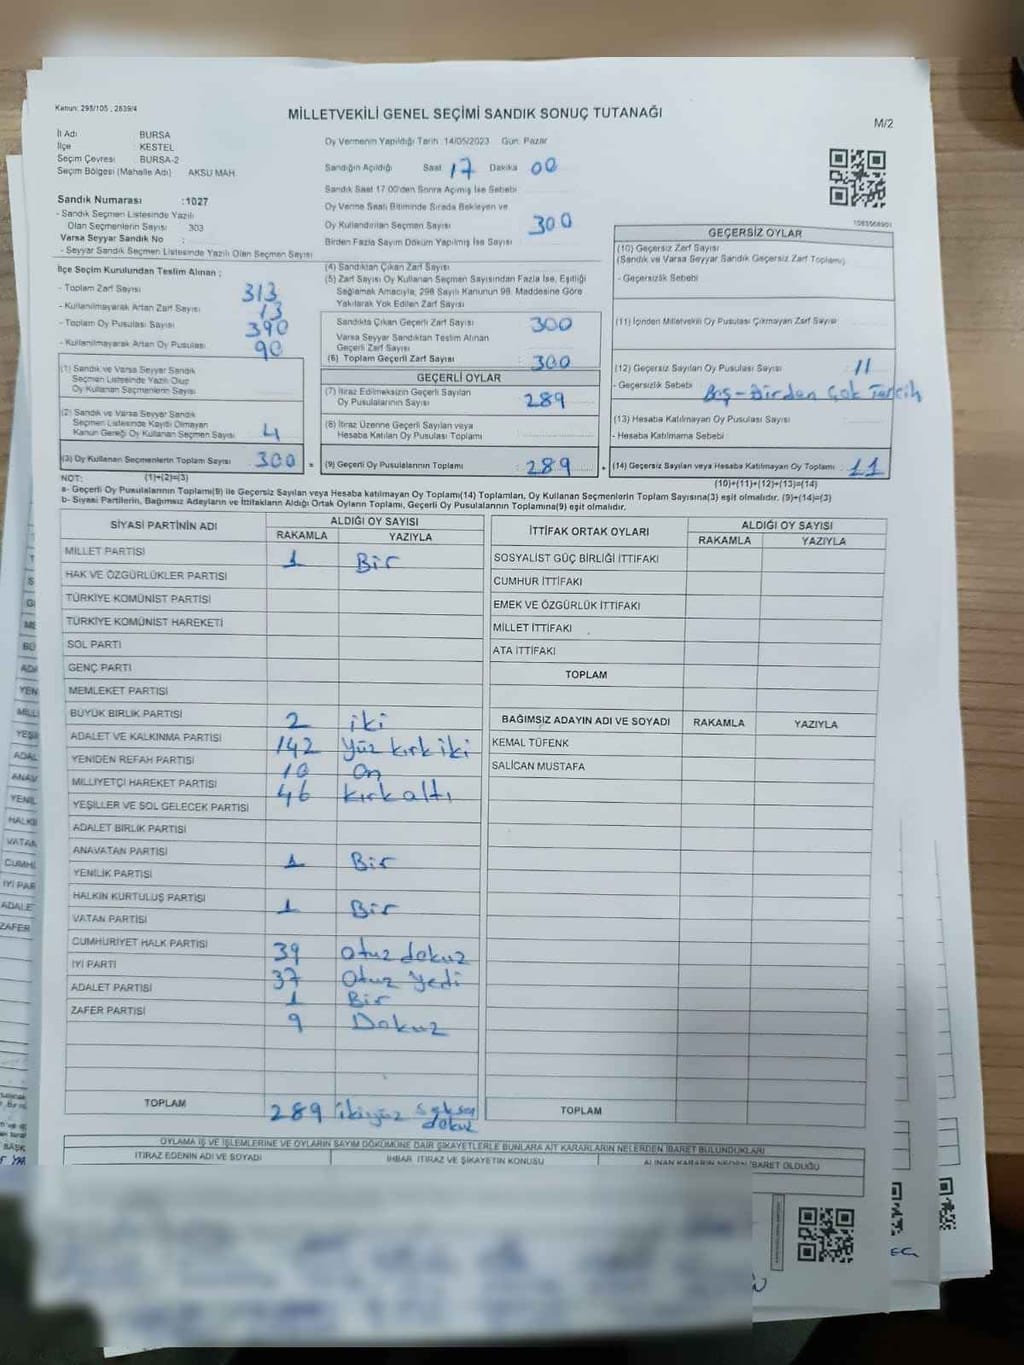 Kanun: 298/105 , 2839/4
MİLLETVEKİLİ GENEL SEÇİMİ SANDIK SONUÇ TUTANAĞI
M/2
İl Adı : BURSA
İlçe : KESTEL
Seçim Çevresi : BURSA-2
Seçim Bölgesi (Mahalle Adı) AKSU MAH.
Sandık Numarası :1027
- Sandık Seçmen Listesinde Yazılı
Olan Seçmenlerin Sayısı 303
Varsa Seyyar Sandık No :
- Seyyar Sandık Seçmen Listesinde Yazılı Olan Seçmen Sayısı
Oy Vermenin Yapıldığı Tarih 14/05/2023 Gün: Pazar
Sandığın Açıldığı Saat 17 Dakika 00
Sandık Saat 17.00'den Sonra Açılmış İse Sebebi
Oy Verme Saati Bitiminde Sırada Bekleyen ve
Oy Kullandırılan Seçmen Sayısı 300
Birden Fazla Sayım Döküm Yapılmış İse Sayısı
İlçe Seçim Kurulundan Teslim Alınan ;
- Toplam Zarf Sayısı 313
- Kullanılmayarak Artan Zarf Sayısı 13
- Toplam Oy Pusulası Sayısı 390
- Kullanılmayarak Artan Oy Pusulası 90
(1) Sandık ve Varsa Seyyar Sandık
Seçmen Listesinde Yazılı Olup
Oy Kullanan Seçmenlerin Sayısı
(2) Sandık ve Varsa Seyyar Sandık
Seçmen Listesinde Kayıtlı Olmayan
Kanun Gereği Oy Kullanan Seçmen Sayısı 4
(3) Oy Kullanan Seçmenlerin Toplam Sayısı 300
(4) Sandıktan Çıkan Zarf Sayısı
(5) Zarf Sayısı Oy Kullanan Seçmen Sayısından Fazla İse, Eşitliği
Sağlamak Amacıyla, 298 Sayılı Kanunun 98. Maddesine Göre
Yakılarak Yok Edilen Zarf Sayısı
Sandıkta Çıkan Geçerli Zarf Sayısı 300
Varsa Seyyar Sandıktan Teslim Alınan
Geçerli Zarf Sayısı
(6) Toplam Geçerli Zarf Sayısı 300
GEÇERLİ OYLAR
(7) İtiraz Edilmeksizin Geçerli Sayılan
Oy Pusulalarının Sayısı 289
(8) İtiraz Üzerine Geçerli Sayılan veya
Hesaba Katılan Oy Pusulası Toplamı
= (9) Geçerli Oy Pusulalarının Toplamı : 289
GEÇERSİZ OYLAR
(10) Geçersiz Zarf Sayısı
(Sandık ve Varsa Seyyar Sandık Geçersiz Zarf Toplamı)
- Geçersizlik Sebebi
(11) İçinden Milletvekili Oy Pusulası Çıkmayan Zarf Sayısı
(12) Geçersiz Sayılan Oy Pusulası Sayısı 11
- Geçersizlik Sebebi Boş-Birden Çok Tercih
(13) Hesaba Katılmayan Oy Pusulası Sayısı
- Hesaba Katılmama Sebebi
+ (14) Geçersiz Sayılan veya Hesaba Katılmayan Oy Toplamı : 11
NOT: (1)+(2)=(3)
(10)+(11)+(12)+(13)=(14)
a- Geçerli Oy Pusulalarının Toplamı(9) ile Geçersiz Sayılan veya Hesaba katılmayan Oy Toplamı(14) Toplamları, Oy Kullanan Seçmenlerin Toplam Sayısına(3) eşit olmalıdır. (9)+(14)=(3)
b- Siyasi Partilerin, Bağımsız Adayların ve İttifakların Aldığı Ortak Oyların Toplamı, Geçerli Oy Pusulalarının Toplamına(9) eşit olmalıdır.
SİYASİ PARTİNİN ADI
ALDIĞI OY SAYISI
RAKAMLA YAZIYLA
MİLLET PARTİSİ 1 Bir
HAK VE ÖZGÜRLÜKLER PARTİSİ
TÜRKİYE KOMÜNİST PARTİSİ
TÜRKİYE KOMÜNİST HAREKETİ
SOL PARTİ
GENÇ PARTİ
MEMLEKET PARTİSİ
BÜYÜK BİRLİK PARTİSİ 2 iki
ADALET VE KALKINMA PARTİSİ 142 Yüz kırk iki
YENİDEN REFAH PARTİSİ 10 On
MİLLİYETÇİ HAREKET PARTİSİ 46 kırk altı
YEŞİLLER VE SOL GELECEK PARTİSİ
ADALET BİRLİK PARTİSİ
ANAVATAN PARTİSİ 1 Bir
YENİLİK PARTİSİ
HALKIN KURTULUŞ PARTİSİ 1 Bir
VATAN PARTİSİ
CUMHURİYET HALK PARTİSİ 39 otuz dokuz
İYİ PARTİ 37 Otuz Yedi
ADALET PARTİSİ 1 Bir
ZAFER PARTİSİ 9 Dokuz
TOPLAM 289 ikiyüz seksen
dokuz
İTTİFAK ORTAK OYLARI
ALDIĞI OY SAYISI
RAKAMLA YAZIYLA
SOSYALİST GÜÇ BİRLİĞİ İTTİFAKI
CUMHUR İTTİFAKI
EMEK VE ÖZGÜRLÜK İTTİFAKI
MİLLET İTTİFAKI
ATA İTTİFAKI
TOPLAM
BAĞIMSIZ ADAYIN ADI VE SOYADI RAKAMLA YAZIYLA
KEMAL TÜFENK
SALİCAN MUSTAFA
TOPLAM
OYLAMA İŞ VE İŞLEMLERİNE VE OYLARIN SAYIM DÖKÜMÜNE DAİR ŞİKAYETLERLE BUNLARA AİT KARARLARIN NELERDEN İBARET BULUNDUKLARI
İTİRAZ EDENİN ADI VE SOYADI
İHBAR İTİRAZ VE ŞİKAYETİN KONUSU
ALINAN KARARIN NEDEN İBARET OLDUĞU